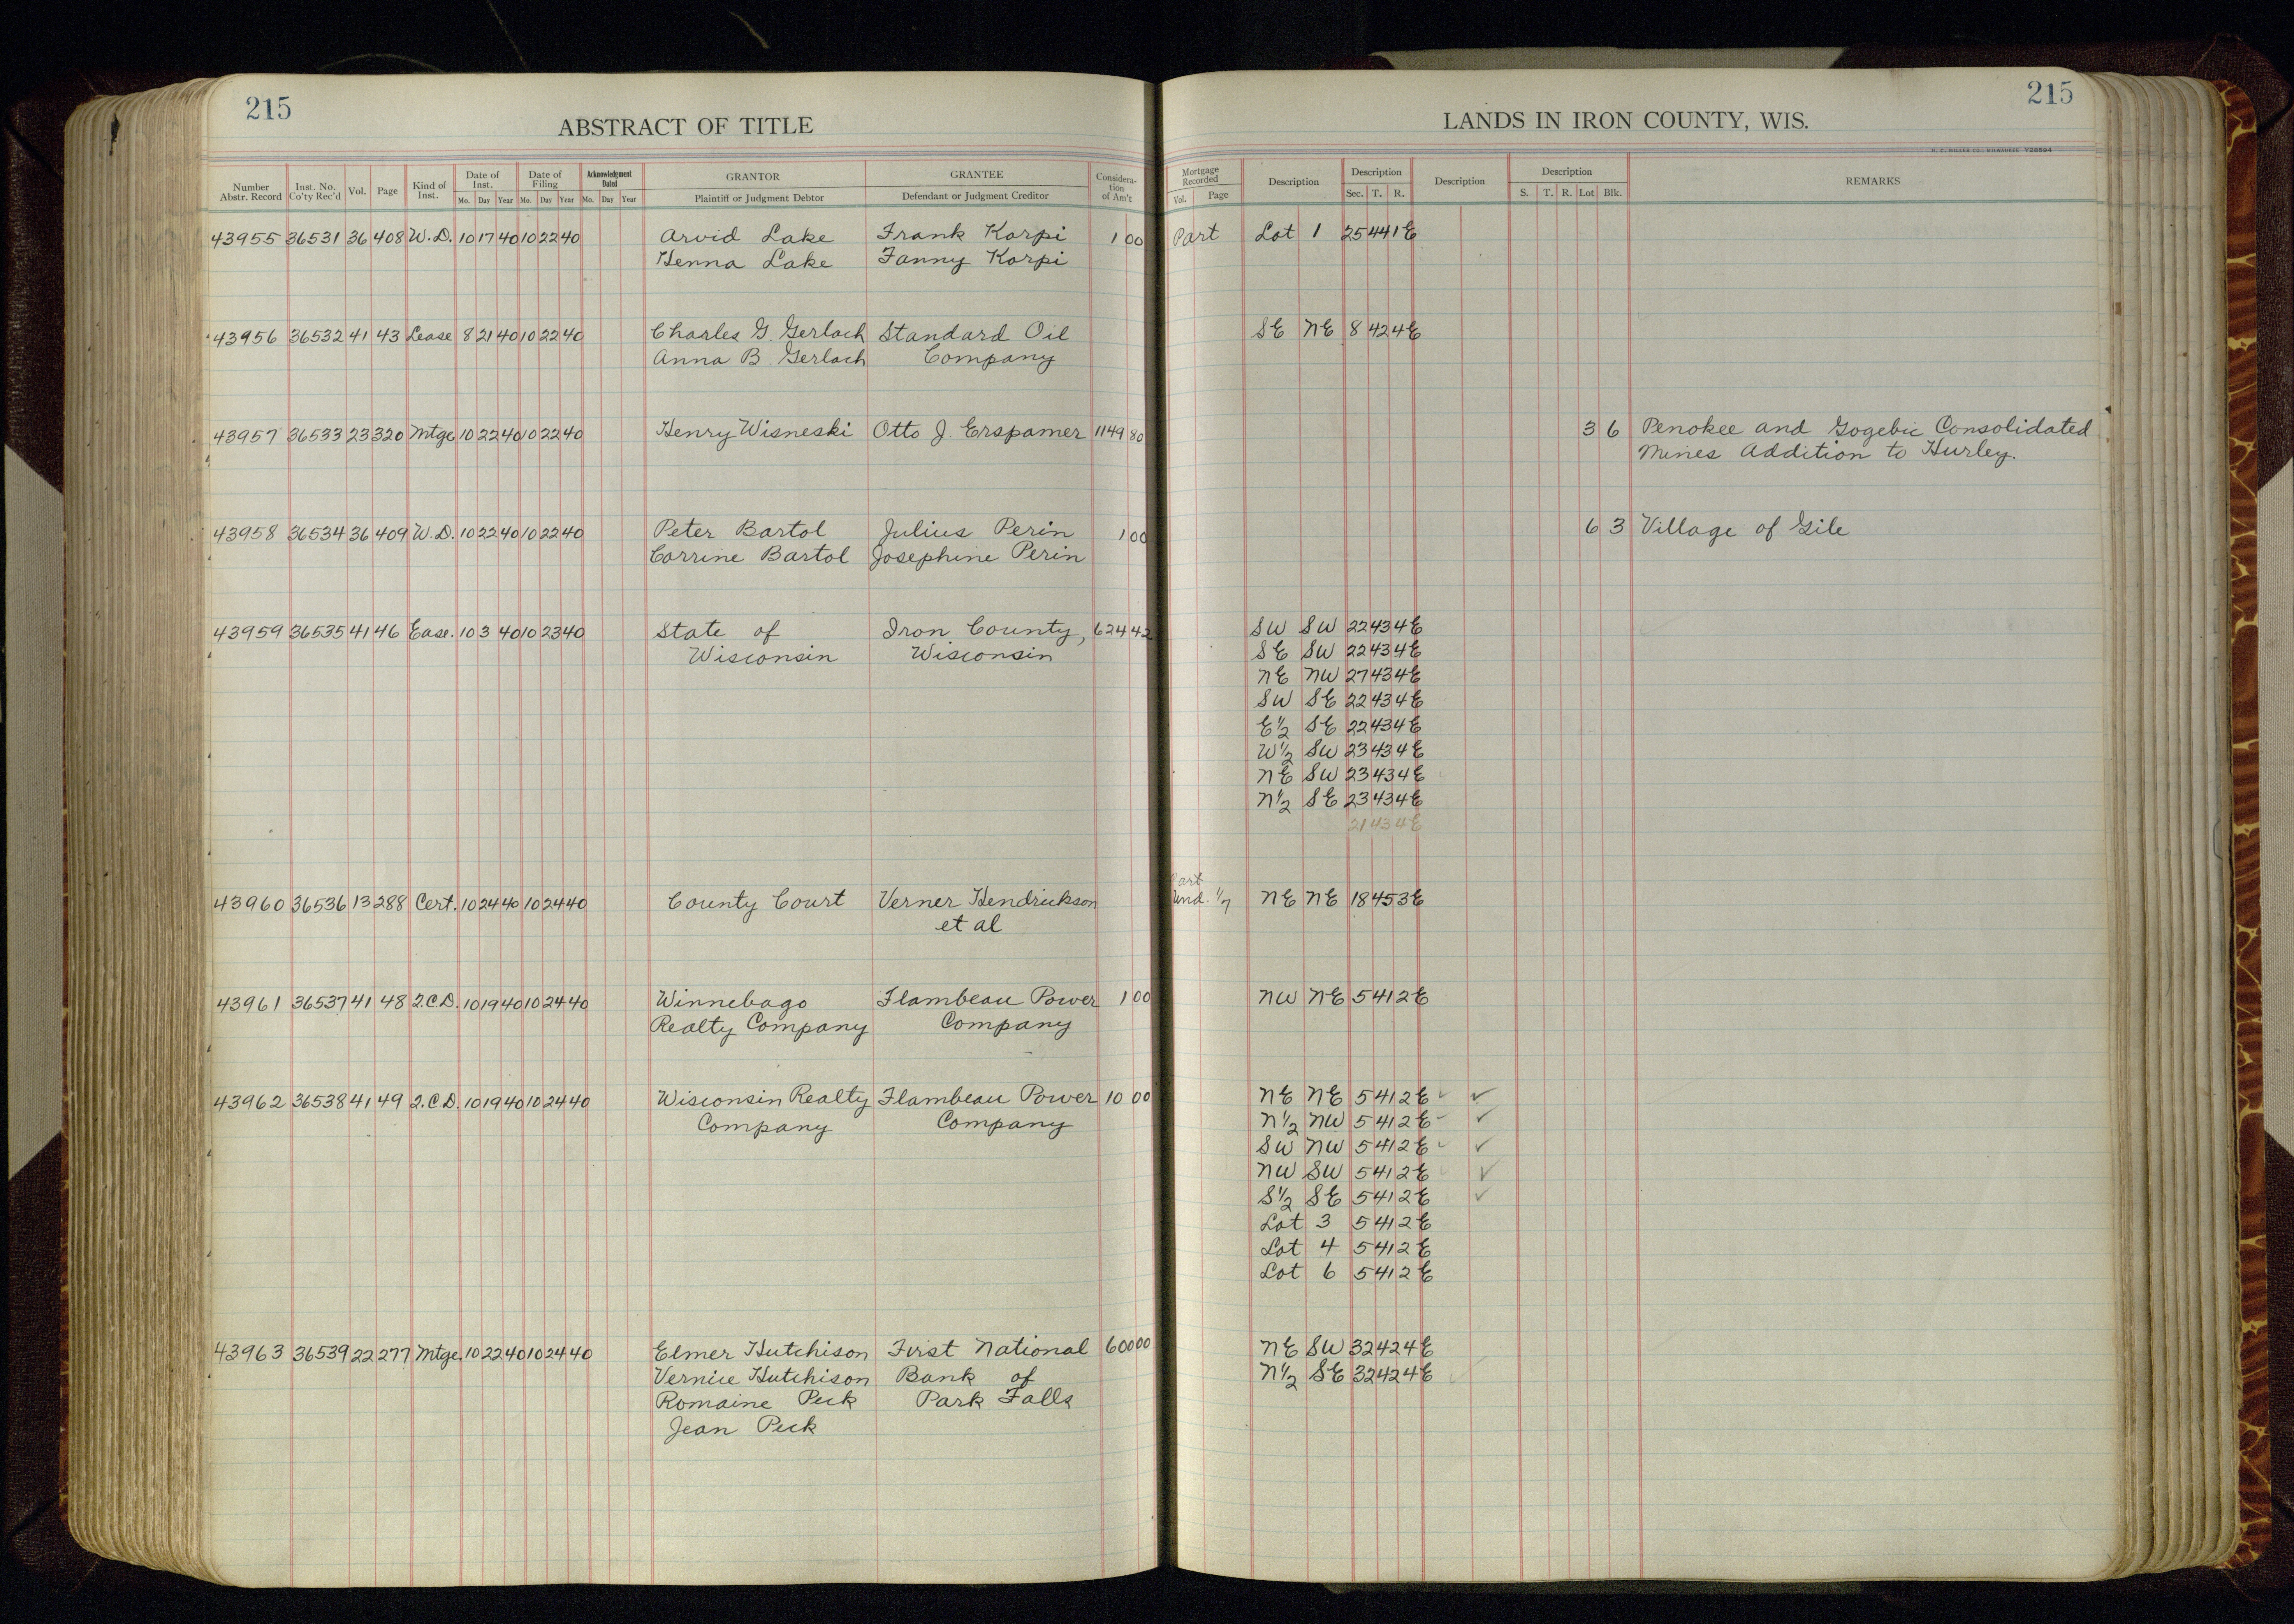 215
ABSTRACT OF TITLE
Number Abstr. Record Inst. No. Co'ty Rec'd Vol. Page Kind of Inst. Date of Inst. Mo. Day Year Date of Filing Mo. Day Year Acknowledgment Dated Mo. Day Year GRANTOR Plaintiff or Judgment Debtor GRANTEE Defendant or Judgment Creditor Considera-tion of Am't
43955 36531 36 408 W.D. 10 17 40 10 22 40 Arvid Lake Frank Korpi 1 00
Henna Lake Fanny Korpi
43956 36532 41 43 Lease 8 21 40 10 22 40 Charles G. Gerlach Standard Oil
Anna B. Gerlach Company
43957 36533 23 320 Mtge 10 22 40 10 22 40 Henry Wisneski Otto J. Erspamer 1149 80
43958 36534 36 409 W.D. 10 22 40 10 22 40 Peter Bartol Julius Perin 1 00
Corrine Bartol Josephine Perin
43959 36535 41 46 Ease. 10 3 40 10 23 40 State of Iron County, 624 42
Wisconsin Wisconsin
43960 36536 13 288 Cert. 10 24 40 10 24 40 County Court Verner Hendrickson
et al
43961 36537 41 48 2.C.D. 10 19 40 10 24 40 Winnebago Flambeau Power 1 00
Realty Company Company
43962 36538 41 49 2.C.D. 10 19 40 10 24 40 Wisconsin Realty Flambeau Power 10 00
Company Company
43963 36539 22 277 Mtge. 10 22 40 10 24 40 Elmer Hutchison First National 600 00
Vernice Hutchison Bank of
Romaine Peck Park Falls
Jean Peck
215
LANDS IN IRON COUNTY, WIS.
H. C. MILLER CO., MILWAUKEE Y28594
Mortgage Recorded Vol. Page Description Description Sec. T. R. Description Description S. T. R. Lot Blk. REMARKS
Part Lot 1 25 44 1E
SE NE 8 42 4E
3 6 Penokee and Gogebic Consolidated
Mines Addition to Hurley.
6 3 Village of Gile
SW SW 22 43 4E
SE SW 22 43 4E
NE NW 27 43 4E
SW SE 22 43 4E
E½ SE 22 43 4E
W½ SW 23 43 4E
NE SW 23 43 4E
N½ SE 23 43 4E
21 43 4E
Part
Und. 1/7 NE NE 18 45 3E
NW NE 5 41 2E
NE NE 5 41 2E ✓ ✓
N½ NW 5 41 2E ✓ ✓
SW NW 5 41 2E ✓ ✓
NW SW 5 41 2E ✓ ✓
S½ SE 5 41 2E ✓
Lot 3 5 41 2E
Lot 4 5 41 2E
Lot 6 5 41 2E
NE SW 32 42 4E
N½ SE 32 42 4E